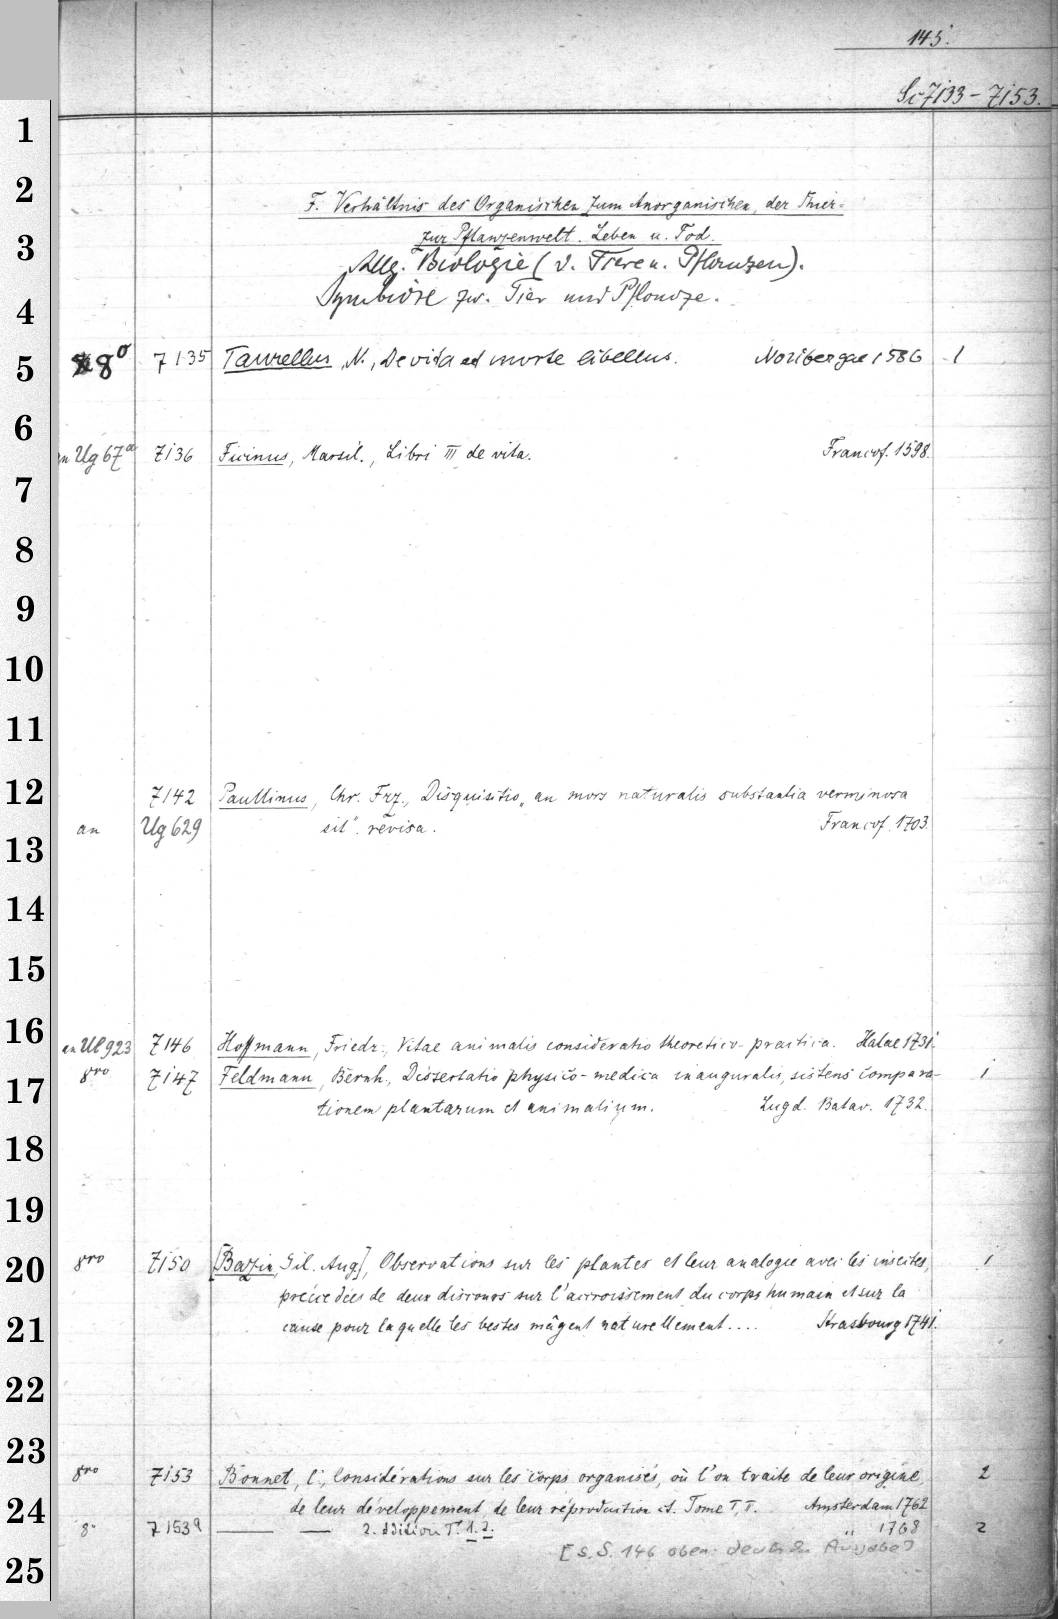 145.
Sc 7133 - 7153.
1
2
F. Verhältnis des Organischen zum Anorganischen, der Thier-
3
zur Pflanzenwelt. Leben u. Tod.
Allg. Biologie (v. Tiere u. Pflanzen).
4
Symbiose zw. Tier und Pflanze.
5 8° 7135 Taurellus, N., De vita et morte libellus. Noribergae 1586 1
6
an Ug 67a 7136 Ficinus, Marsil., Libri III de vita. Francof. 1598.
7
8
9
10
11
12 7142 Paullinus, Chr. Frz., Disquisitio „an mors naturalis substantia verminosa
an Ug 629 sit". revisa. Francof. 1703.
13
14
15
16
an Ul 923 7146 Hoffmann, Friedr., Vitae animalis consideratio theoretico-practica. Halae 1731.
8vo 7147 Feldmann, Bernh., Dissertatio physico-medica inauguralis, sistens compara- 1
17
tionem plantarum et animalium. Lugd. Batav. 1732.
18
19
20 8vo 7150 [Bazin, Gil. Aug], Observations sur les plantes et leur analogie avec les insectes, 1
précedées de deux discours sur l'accroissement du corps humain et sur la
21 cause pour laquelle les bestes nâgent naturellement.... Strasbourg 1741.
22
23
8vo 7153 Bonnet, C., Considérations sur les corps organisés, où l'on traite de leur origine, 2
24 de leur développement, de leur réproduction et. Tome I, II. Amsterdam 1762
8° 7153a — — 2. édition T. 1. 2. " 1768 2
[s. S. 146 oben: deutsche Ausgabe]
25